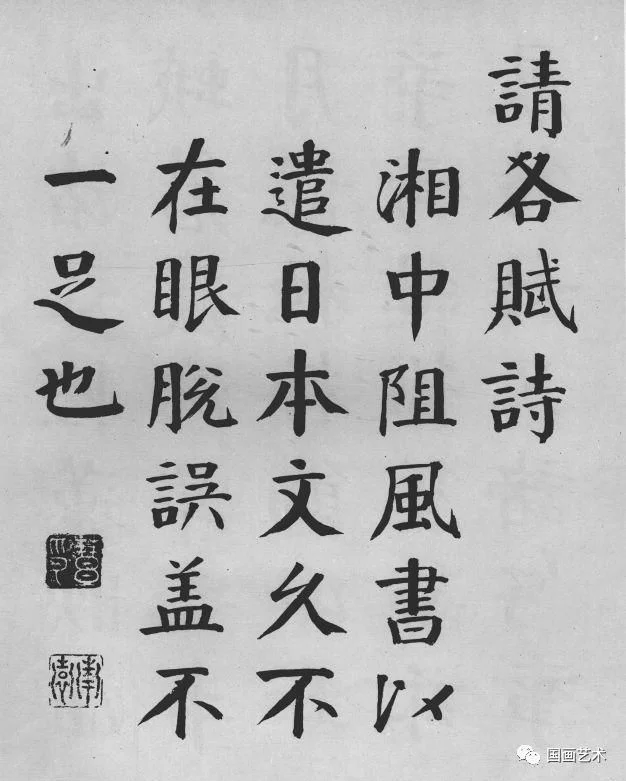 請各賦詩
湘中阻風書以
遣日本文久不
在眼脫誤盖不
一足也
国画艺术